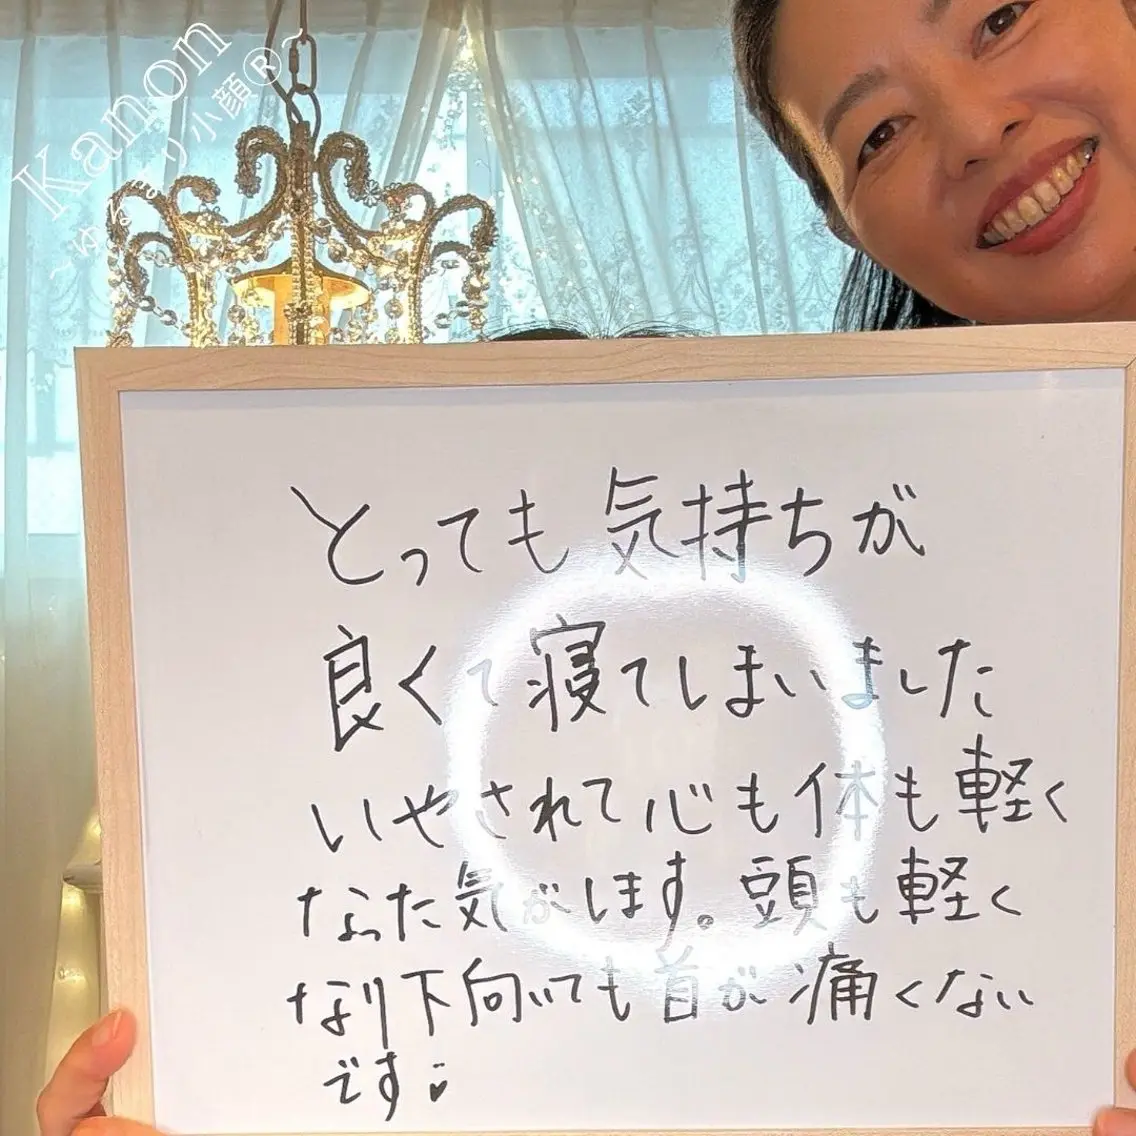 Kanon
~ゆるっり小顔®~
とっても気持ちが
良くて寝てしまいました
いやされて心も体も軽く
なった気がします。頭も軽く
なり下向いても首が痛くない
です♥